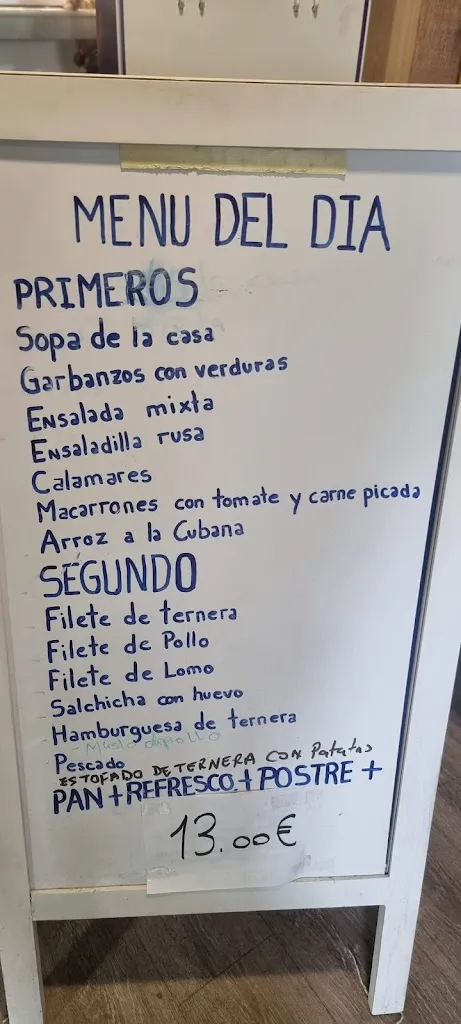 MENU DEL DIA
PRIMEROS
Sopa de la casa
Garbanzos con verduras
Ensalada mixta
Ensaladilla rusa
Calamares
Macarrones con tomate y carne picada
Arroz a la Cubana
SEGUNDO
Filete de ternera
Filete de Pollo
Filete de Lomo
Salchicha con huevo
Hamburguesa de ternera
- Muslo de pollo
Pescado
ESTOFADO DE TERNERA CON Patatas
PAN + REFRESCO + POSTRE +
13.00€